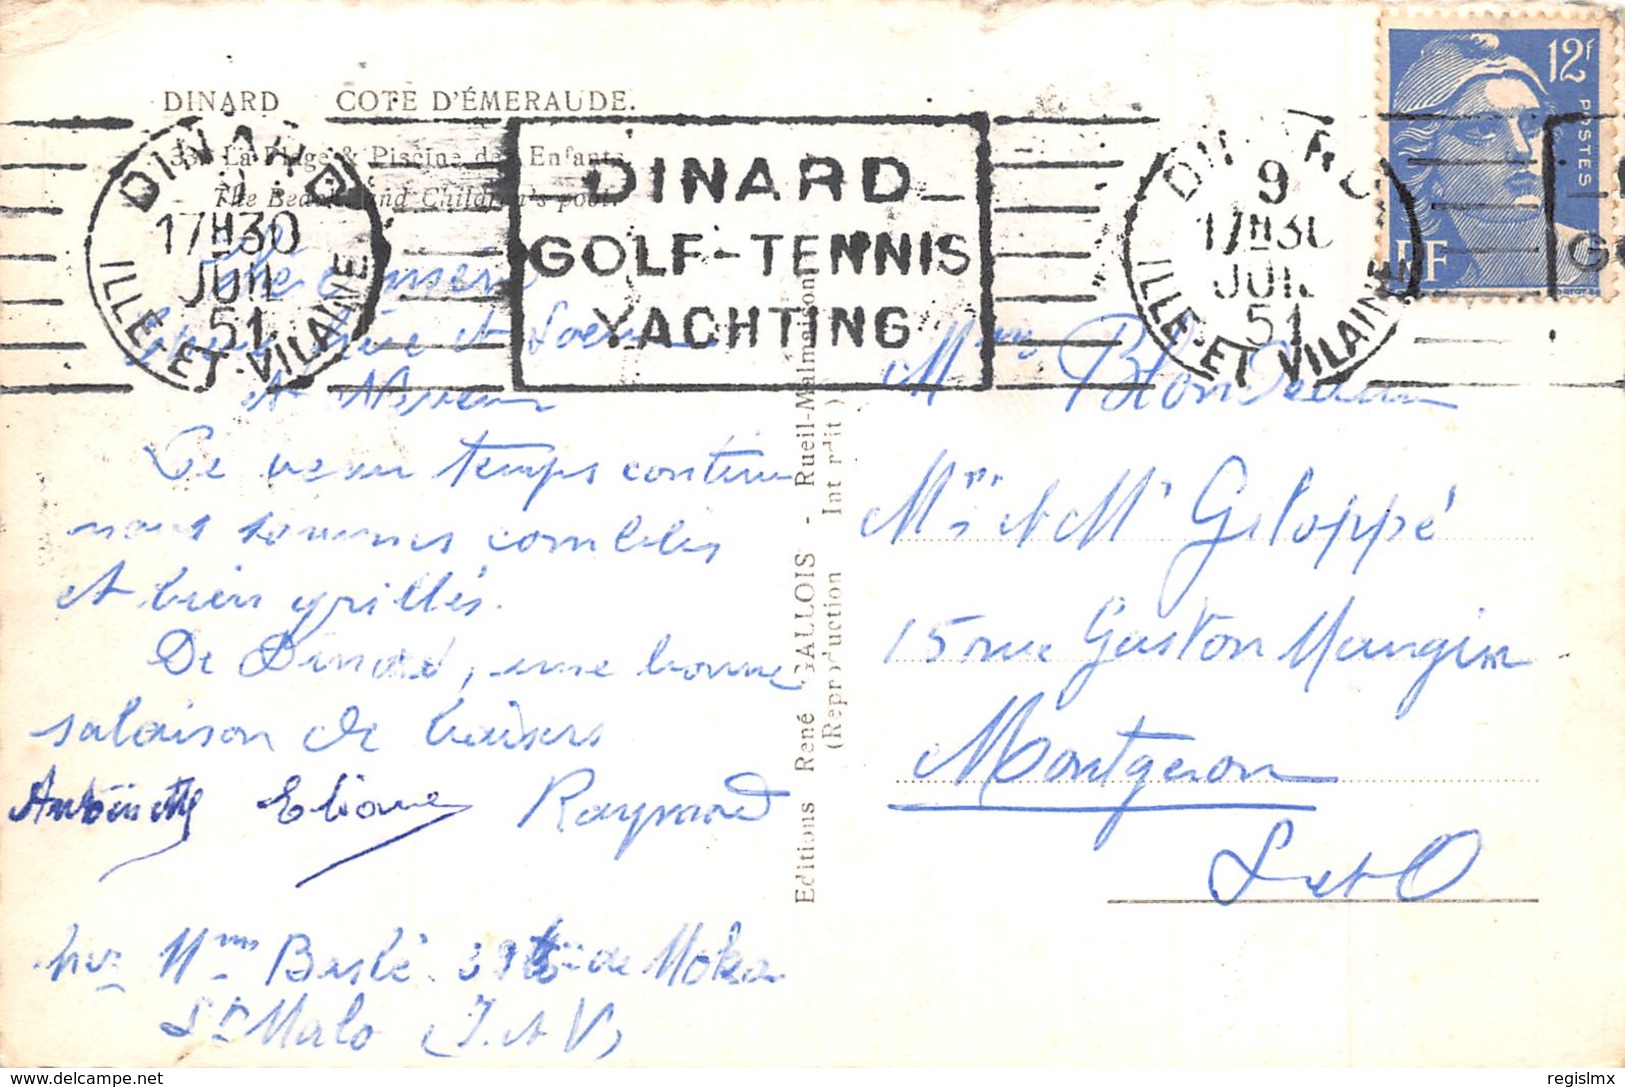 DINARD COTE D'ÉMERAUDE.
33. La Plage & Piscine des Enfants.
The Beach and Children's pool.
DINARD
17H30
9
JUIN
51
ILLE-ET-VILAINE
DINARD
GOLF-TENNIS
YACHTING
DINARD
9
17H30
JUIN
51
ILLE-ET-VILAINE
12F
POSTES
RF
et
Ce beau temps continue
nous sommes comblés
et bien grillés.
De Dinard, une bonne
salaison de baisers
Antoinette Eliane Raymond
chez Mme Beslé 39 de Moka
St Malo (I et V)
Editions René GALLOIS - Rueil-Malmaison
(Reproduction Interdite)
Blondeau
Mme et Mr Galoppé
15 rue Gaston Mangin
Montgeron
S et O
© delcampe.net
regislmx